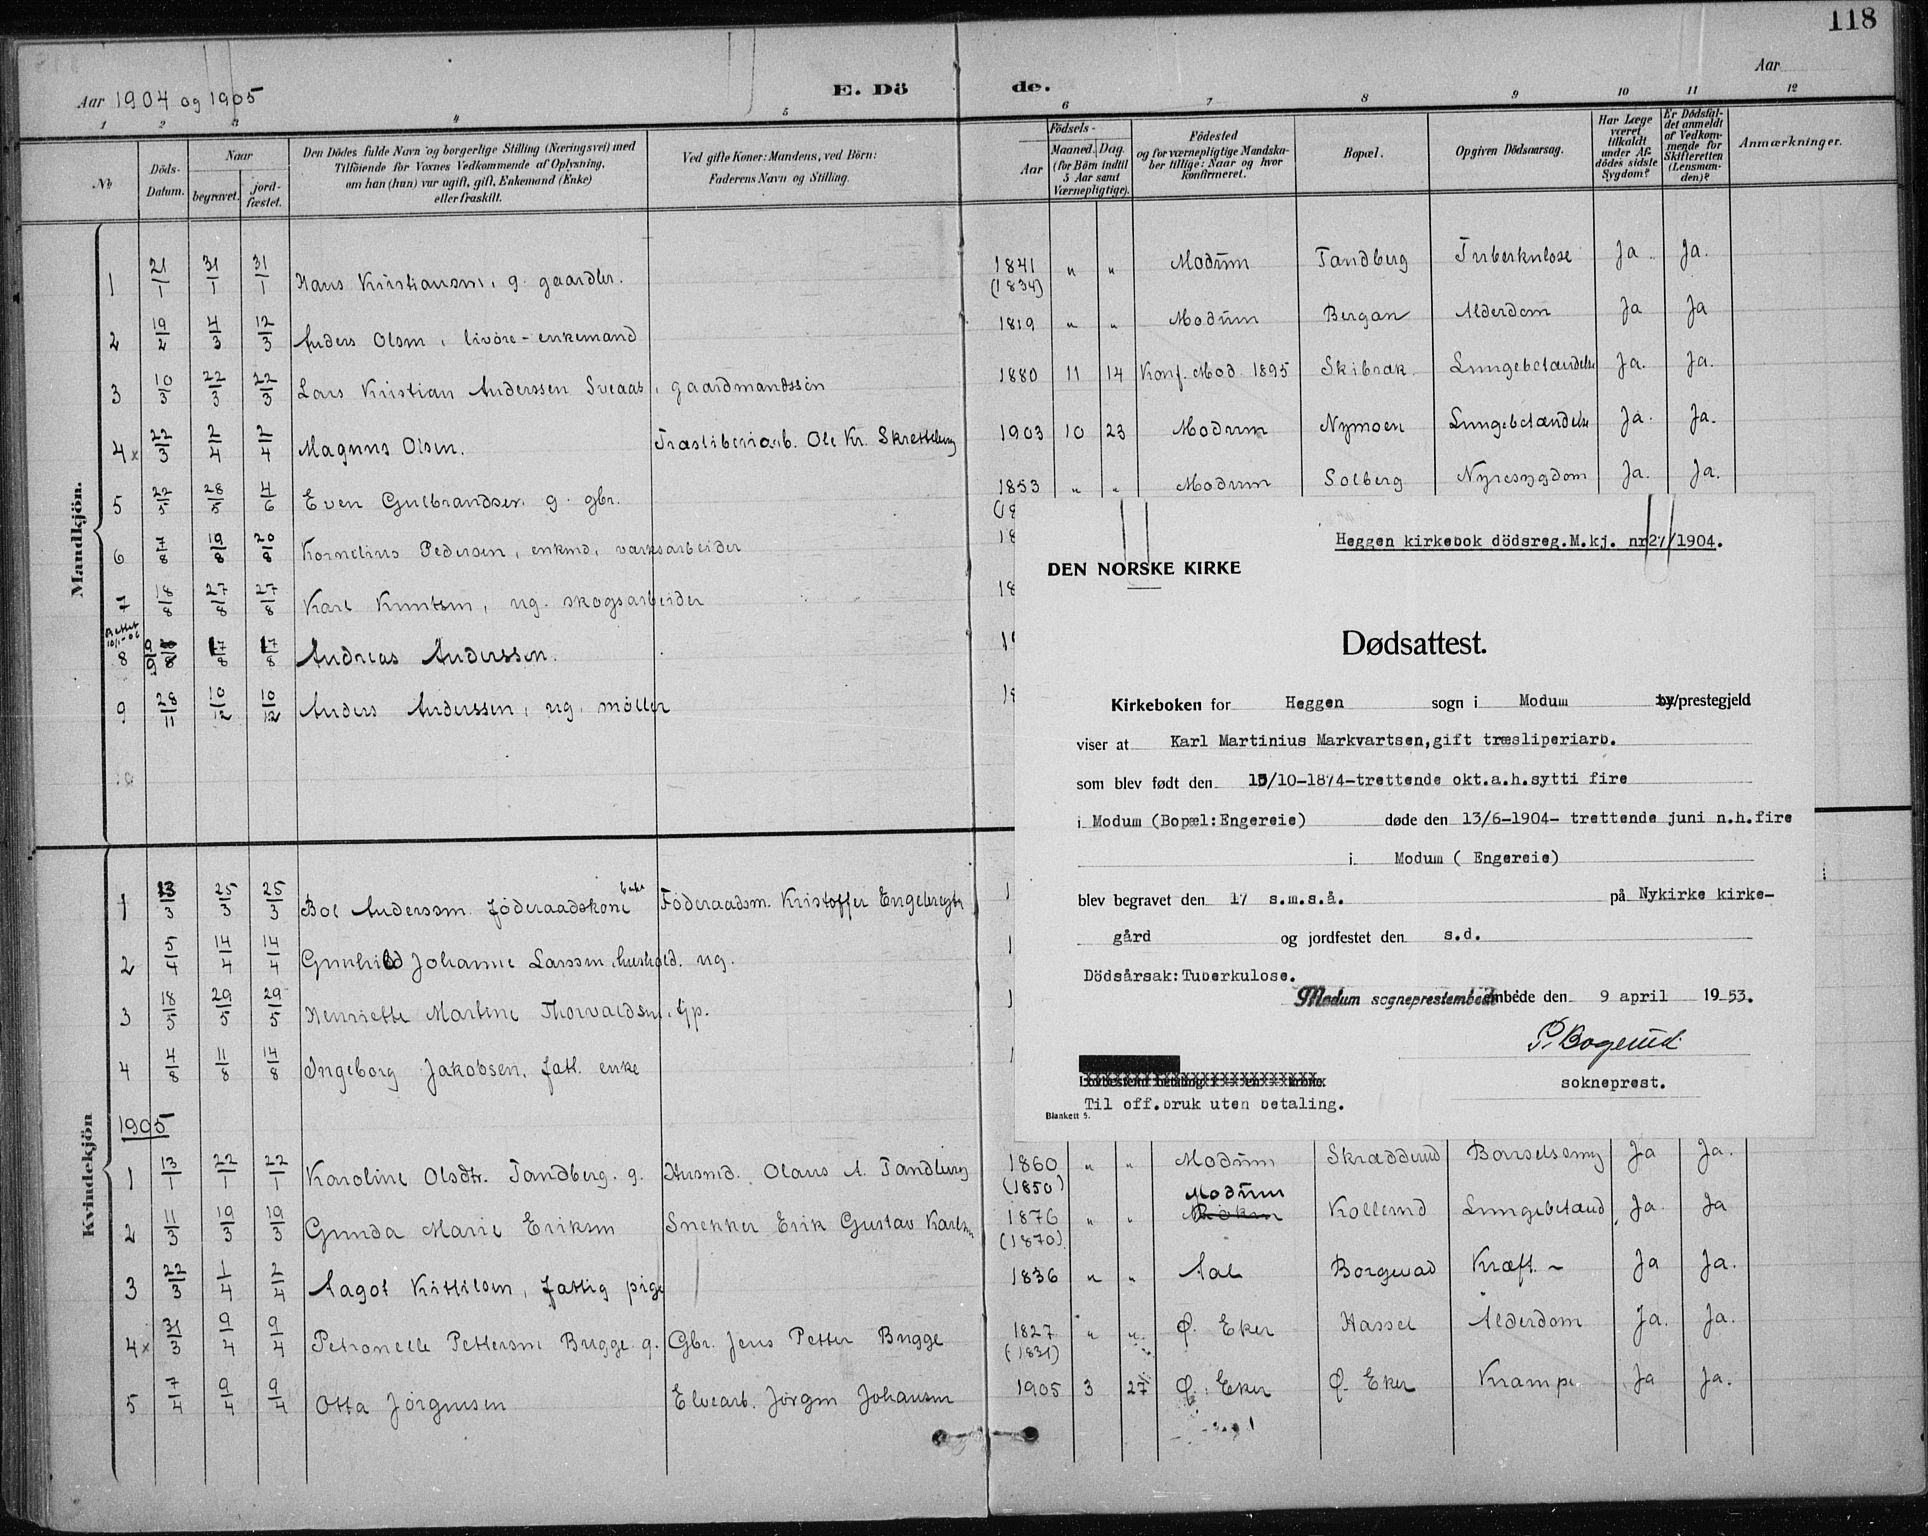 118
Aar 1904 og 1905
E. Dö de.
Aar
1 2 3 4 5 6 7 8 9 10 11 12
No
Döds-Datum.
Naar
begravet.
jord-fæstet.
Den Dödes fulde Navn og borgerlige Stilling (Næringsvei) med
Tilföiende for Voxnes Vedkommende af Oplysning,
om han (hun) var ugift, gift, Enkemand (Enke)
eller fraskilt.
Ved gifte Koner: Mandens, ved Börn:
Faderens Navn og Stilling.
Födsels-
Aar
Maaned. Dag.
(for Börn indtil
5 Aar samt
Værnepligtige).
Födested
og for værnepligtige Mandska-
ber tillige: Naar og hvor
konfirmeret.
Bopæl.
Opgiven Dödsaarsag.
Har Læge
været
tilkaldt
under Af-
dödes sidste
Sygdom?
Er Dödsfal-
det anmeldt
af Vedkom-
mende for
Skifteretten
(Lensman-
den)?
Anmærkninger.
Mandkjön.
1 21/1 31/1 31/1 Hans Kristiansen, g. gaardbr. 1841 (1834) " " Modum Tandberg Tuberkulose Ja Ja.
2 19/2 4/3 12/3 Anders Olsen, livöre-enkemand 1819 " " Modum Bergan Alderdom Ja Ja
3 10/3 22/3 22/3 Lars Kristian Anderssen Sveaas, gaardmandssön 1880 11 14 Konf. Mod. 1895 Skibrak Lungebetændelse Ja. Ja.
4x 22/3 2/4 2/4 Magnus Olsen. Træsliberiarb. Ole Kr. Skretteberg 1903 10 23 Modum Nymoen Lungebetændelse Ja. Ja.
5 22/5 28/5 4/6 Even Gulbrandsen g. gbr. 1853 " " Modum Solberg Nyresygdom Ja. Ja.
6 Kornelius Pedersen, enkmd, værksarbeider 18
7 18/8 27/8 27/8 Karl Knutsen, ug. skogsarbeider 18
8 Andreas Anderssen. 19
9 28/11 10/12 10/12 Anders Anderssen, ug. möller 18
10
Heggen kirkebok dödsreg.M.kj. nr27/1904.
DEN NORSKE KIRKE
Dødsattest.
Kirkeboken for Heggen sogn i Modum by/prestegjeld
viser at Karl Martinius Markvartsen,gift træsliperiarb.
som blev født den 13/10-1874-trettende okt.a.h.sytti fire
i Modum (Bopæl:Engereie) døde den 13/6-1904- trettende juni n.h.fire
i Modum ( Engereie)
blev begravet den 17 s.m.s.å. på Nykirke kirke-
gård og jordfestet den s.d.
Dödsårsak:Tuberkulose.
Modum sogneprestembede embede den 9 april 1953.
P. Bogerud
sokneprest.
Lovbestemt betaling 1 - en - krone.
Til off.bruk uten betaling.
Blankett 5.
Kvindekjön
1 13/3 25/3 25/3 Boe Anderssen föderaadskone Föderaadsm. Kristoffer Engebregts
2 5/4 14/4 14/4 Gunhild Johanne Larssen, hushold. ug.
3 18/5 29/5 29/5 Henriette Martine Thorvaldsen, tjp.
4 4/8 11/8 14/8 Ingeborg Jakobsen, fatt. enke
1905
1 13/1 22/1 22/1 Karoline Olsdtr. Tandberg. g. Husmd. Olaus A. Tandberg 1860 (1850) " " Modum Skrædderud Barselseng Ja Ja.
2 11/3 19/3 19/3 Gunda Marie Eriksen Snekker Erik Gustav Karlsen 1876 (1870) " " Modum Kollerud Lungebetænd. Ja. Ja
3 22/3 1/4 2/4 Aagot Kittilsen, fattig pige 1836 " " Aal Borgerud Kræft Ja Ja.
4x 31/3 9/4 9/4 Petronelle Pettersen Brygge g. Gbr. Jens Petter Brygge 1827 (1831) " " Ø. Eker Hassel Alderdom Ja. Ja.
5 7/4 9/4 9/4 Otta Jörgensen Elvearb. Jörgen Johansen 1905 3 27 Ø. Eker Ø. Eker Krampe Ja Ja.